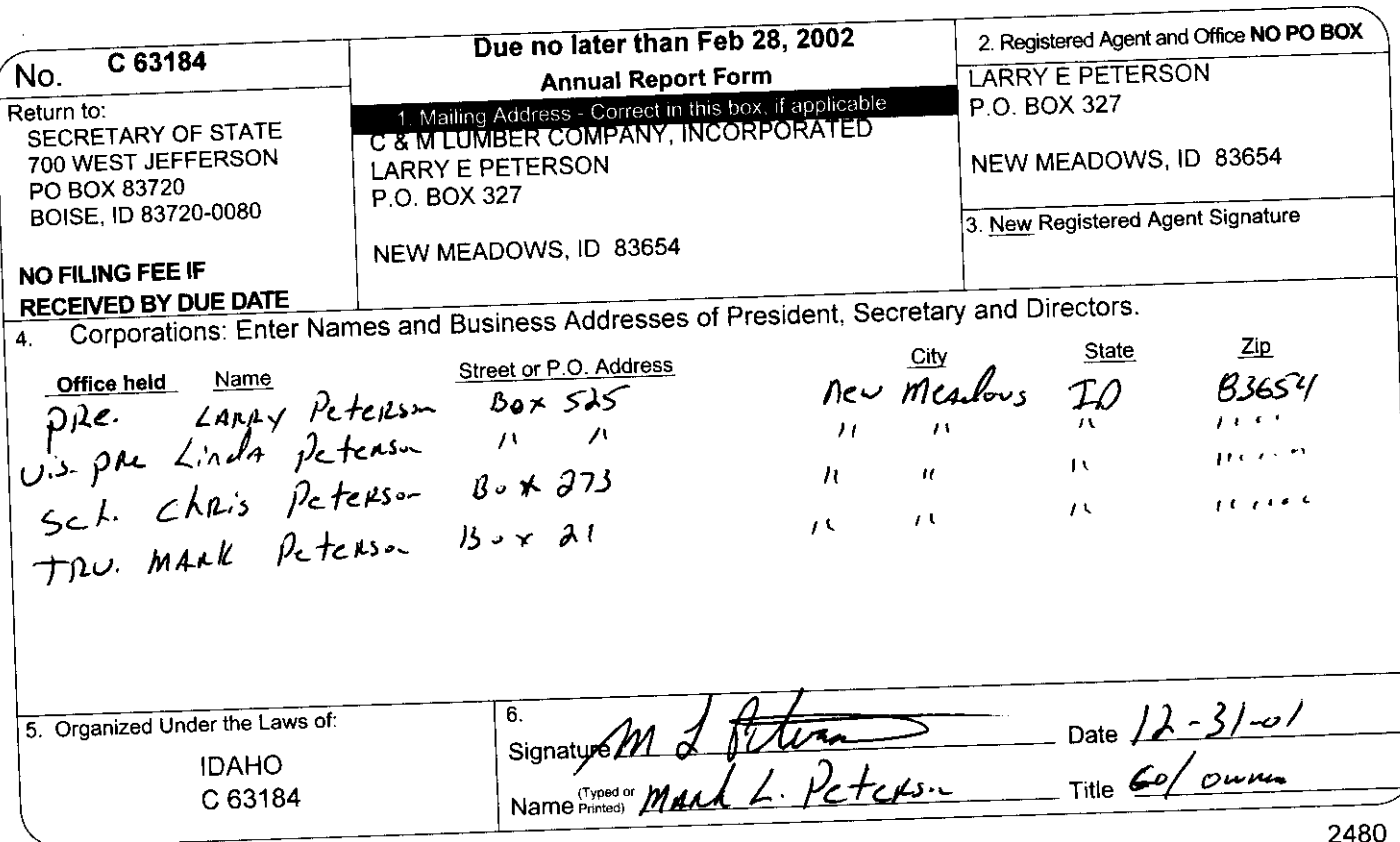 No. C 63184
Return to:
SECRETARY OF STATE
700 WEST JEFFERSON
PO BOX 83720
BOISE, ID 83720-0080
NO FILING FEE IF
RECEIVED BY DUE DATE
Due no later than Feb 28, 2002
Annual Report Form
1. Mailing Address - Correct in this box, if applicable
C & M LUMBER COMPANY, INCORPORATED
LARRY E PETERSON
P.O. BOX 327
NEW MEADOWS, ID 83654
2. Registered Agent and Office NO PO BOX
LARRY E PETERSON
P.O. BOX 327
NEW MEADOWS, ID 83654
3. New Registered Agent Signature
4. Corporations: Enter Names and Business Addresses of President, Secretary and Directors.
Office held Name Street or P.O. Address City State Zip
PRe. LARRY Peterson Box 525 New Meadows ID 83654
Vis. PRe Linda Peterson " " " " " " " " "
Sct. Chris Peterson Box 273 " " " " " " " "
TRU. MARK Peterson Box 21 " " " " " " " "
5. Organized Under the Laws of:
IDAHO
C 63184
6.
Signature M L Peterson Date 12-31-01
Name (Typed or Printed) Mark L. Peterson Title Co/owner
2480